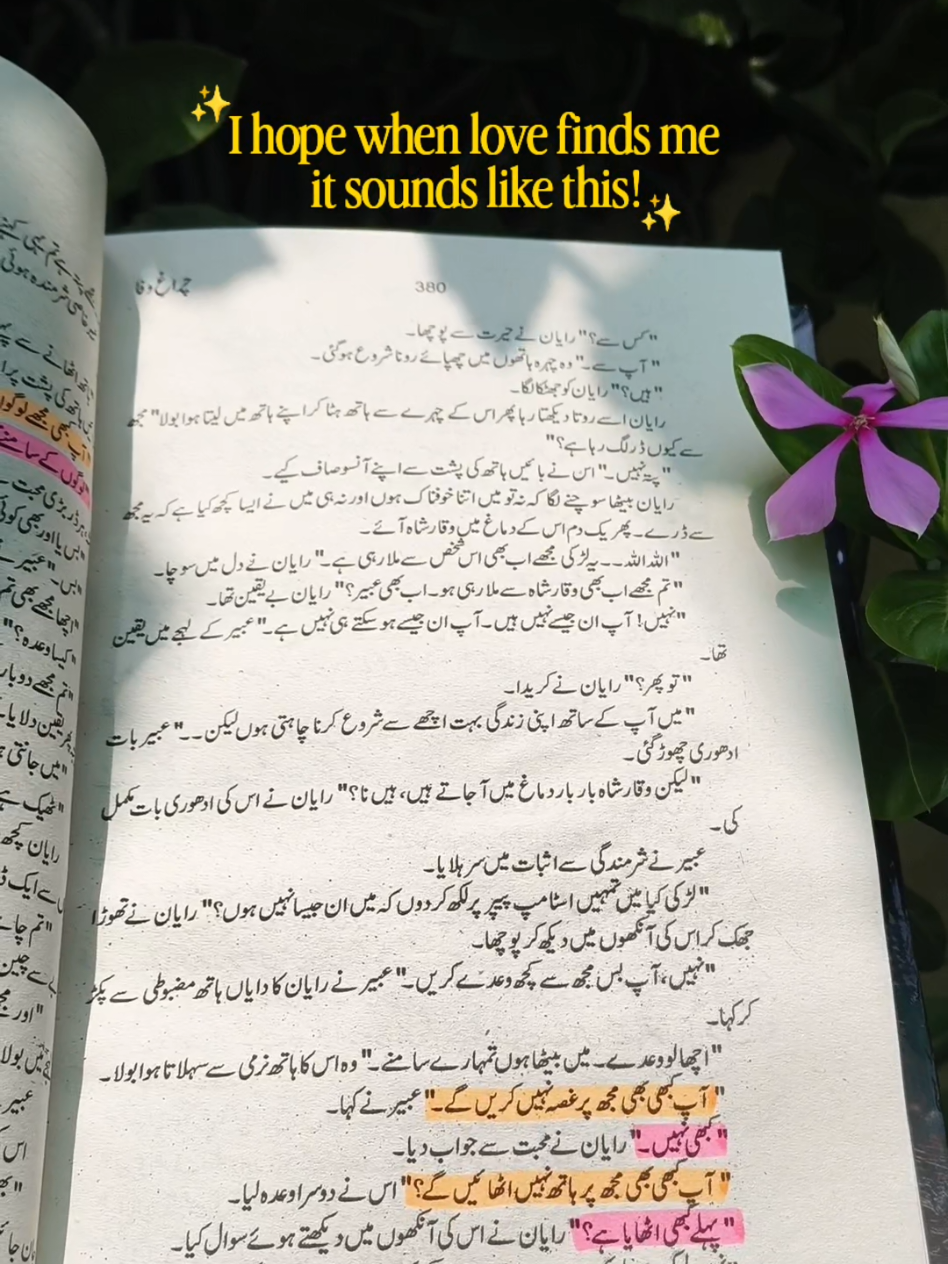 ✨I hope when love finds me
it sounds like this!✨
چراغ وفا
380
"کس سے؟" رایان نے حیرت سے پوچھا۔
"آپ سے۔" وہ چہرہ ہاتھوں میں چھپائے رونا شروع ہوگئی۔
"ہیں؟" رایان کو جھٹکا لگا۔
رایان اسے روتا دیکھتا رہا پھر اس کے چہرے سے ہاتھ ہٹا کر اپنے ہاتھ میں لیتا ہوا بولا "مجھ
سے کیوں ڈر لگ رہا ہے؟"
"پتہ نہیں۔" اس نے بائیں ہاتھ کی پشت سے اپنے آنسو صاف کیے۔
رایان بیٹھا سوچنے لگا کہ نہ تو میں اتنا خوفناک ہوں اور نہ ہی میں نے ایسا کچھ کیا ہے کہ یہ مجھ
سے ڈرے۔ پھر یک دم اس کے دماغ میں وقار شاہ آئے۔
"اللہ اللہ۔۔ یہ لڑکی مجھے اب بھی اس شخص سے ملا رہی ہے۔" رایان نے دل میں سوچا۔
"تم مجھے اب بھی وقار شاہ سے ملا رہی ہو۔ اب بھی عبیر؟" رایان بے یقین تھا۔
"نہیں! آپ ان جیسے نہیں ہیں۔ آپ ان جیسے ہو سکتے ہی نہیں ہے۔" عبیر کے لہجے میں یقین
تھا۔
"تو پھر؟" رایان نے کریدا۔
"میں آپ کے ساتھ اپنی زندگی بہت اچھے سے شروع کرنا چاہتی ہوں لیکن۔۔" عبیر بات
ادھوری چھوڑ گئی۔
"لیکن وقار شاہ بار بار دماغ میں آ جاتے ہیں، ہیں نا؟" رایان نے اس کی ادھوری بات مکمل
کی۔
عبیر نے شرمندگی سے اثبات میں سر ہلایا۔
"لڑکی کیا میں تمہیں اسٹامپ پیپر پر لکھ کر دوں کہ میں ان جیسا نہیں ہوں؟" رایان نے تھوڑا
جھک کر اس کی آنکھوں میں دیکھ کر پوچھا۔
"نہیں، آپ بس مجھ سے کچھ وعدے کریں۔" عبیر نے رایان کا دایاں ہاتھ مضبوطی سے پکڑ
کر کہا۔
"اچھا لو وعدے۔ میں بیٹھا ہوں تمہارے سامنے۔" وہ اس کا ہاتھ نرمی سے سہلاتا ہوا بولا۔
"آپ کبھی بھی مجھ پر غصہ نہیں کریں گے۔" عبیر نے کہا۔
"کبھی نہیں۔" رایان نے محبت سے جواب دیا۔
"آپ کبھی بھی مجھ پر ہاتھ نہیں اٹھائیں گے؟" اس نے دوسرا وعدہ لیا۔
"پہلے کبھی اٹھایا ہے؟" رایان نے اس کی آنکھوں میں دیکھتے ہوئے سوال کیا۔